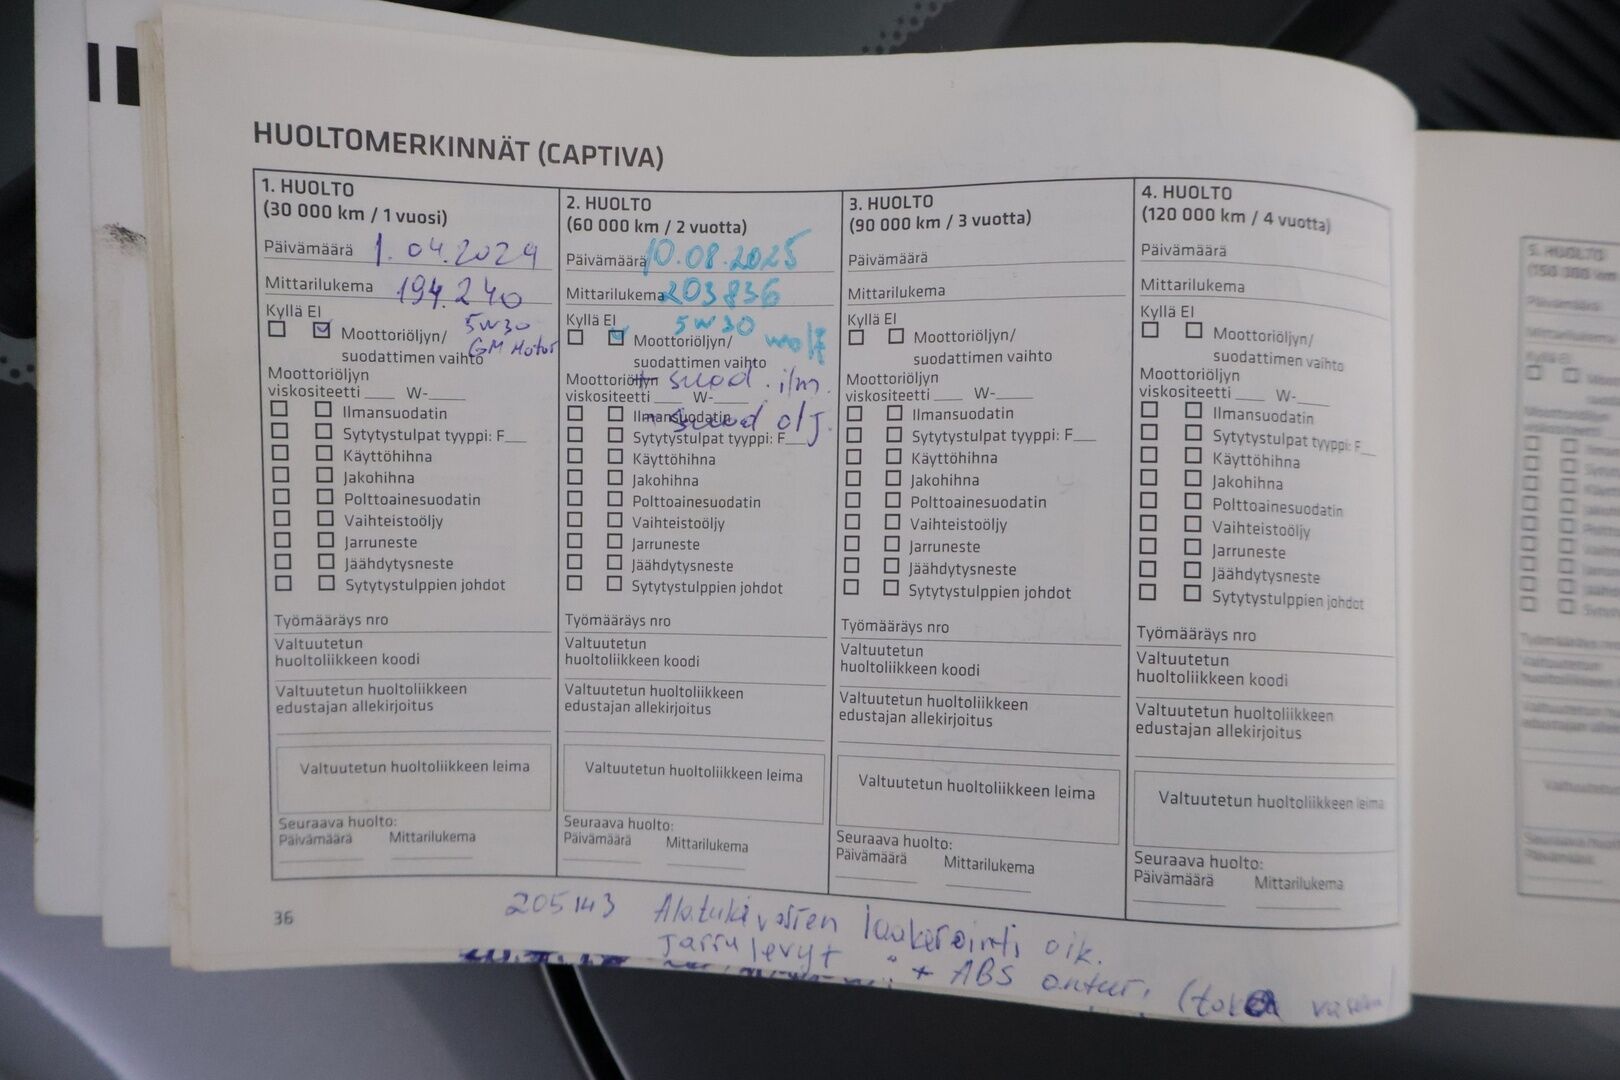 HUOLTOMERKINNÄT (CAPTIVA)
1. HUOLTO
(30 000 km / 1 vuosi)
Päivämäärä 1.04.2024
Mittarilukema 194.240
Kyllä EI
Moottoriöljyn/ 5W30
suodattimen vaihto GM Motor
Moottoriöljyn
viskositeetti ____ W-____
Ilmansuodatin
Sytytystulpat tyyppi: F___
Käyttöhihna
Jakohihna
Polttoainesuodatin
Vaihteistoöljy
Jarruneste
Jäähdytysneste
Sytytystulppien johdot
Työmääräys nro
Valtuutetun
huoltoliikkeen koodi
Valtuutetun huoltoliikkeen
edustajan allekirjoitus
Valtuutetun huoltoliikkeen leima
Seuraava huolto:
Päivämäärä Mittarilukema
2. HUOLTO
(60 000 km / 2 vuotta)
Päivämäärä 10.08.2025
Mittarilukema 203836
Kyllä EI 5W30
Moottoriöljyn/ wolf
suodattimen vaihto
Moottoriöljyn + suod. ilm.
viskositeetti ____ W-____
Ilmansuodatin - suod olj.
Sytytystulpat tyyppi: F___
Käyttöhihna
Jakohihna
Polttoainesuodatin
Vaihteistoöljy
Jarruneste
Jäähdytysneste
Sytytystulppien johdot
Työmääräys nro
Valtuutetun
huoltoliikkeen koodi
Valtuutetun huoltoliikkeen
edustajan allekirjoitus
Valtuutetun huoltoliikkeen leima
Seuraava huolto:
Päivämäärä Mittarilukema
3. HUOLTO
(90 000 km / 3 vuotta)
Päivämäärä
Mittarilukema
Kyllä EI
Moottoriöljyn/
suodattimen vaihto
Moottoriöljyn
viskositeetti ____ W-____
Ilmansuodatin
Sytytystulpat tyyppi: F___
Käyttöhihna
Jakohihna
Polttoainesuodatin
Vaihteistoöljy
Jarruneste
Jäähdytysneste
Sytytystulppien johdot
Työmääräys nro
Valtuutetun
huoltoliikkeen koodi
Valtuutetun huoltoliikkeen
edustajan allekirjoitus
Valtuutetun huoltoliikkeen leima
Seuraava huolto:
Päivämäärä Mittarilukema
4. HUOLTO
(120 000 km / 4 vuotta)
Päivämäärä
Mittarilukema
Kyllä EI
Moottoriöljyn/
suodattimen vaihto
Moottoriöljyn
viskositeetti ____ W-____
Ilmansuodatin
Sytytystulpat tyyppi: F___
Käyttöhihna
Jakohihna
Polttoainesuodatin
Vaihteistoöljy
Jarruneste
Jäähdytysneste
Sytytystulppien johdot
Työmääräys nro
Valtuutetun
huoltoliikkeen koodi
Valtuutetun huoltoliikkeen
edustajan allekirjoitus
Valtuutetun huoltoliikkeen leima
Seuraava huolto:
Päivämäärä Mittarilukema
36
205143 Alatukivarren laakerointi oik.
Jarrulevyt " + ABS anturi
5. HUOLTO